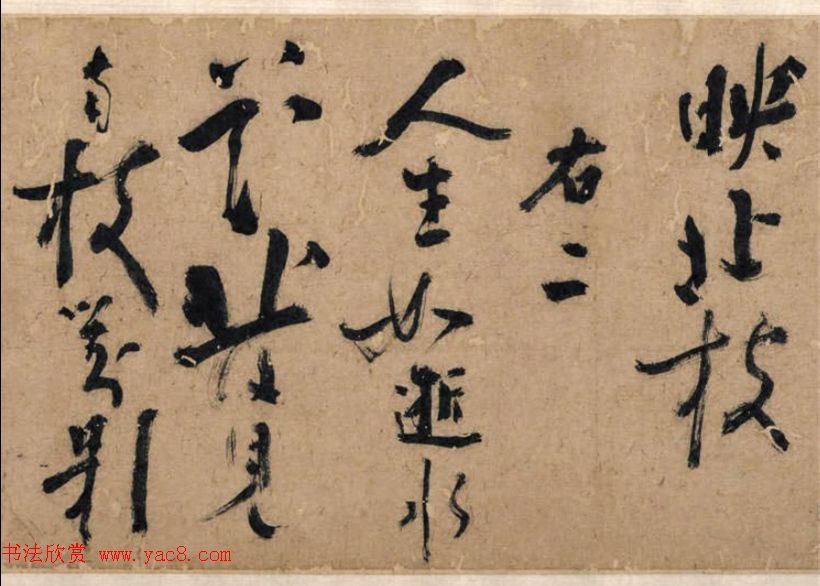 映北枝
右二
人生如逝水
見
南枝影
书法欣赏 www.yac8.com